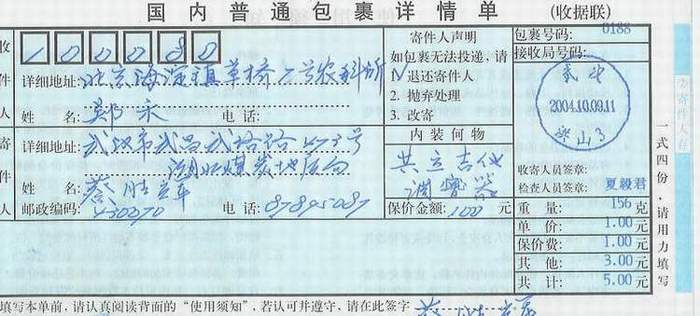 国内普通包裹详情单 (收据联)
收件人 100080
详细地址:北京海淀镇草桥2号农科所
姓名: 郑永 电话:
寄件人 详细地址:武汉市武昌武珞路473号
湖北煤炭地质局
姓名: 蔡胜
邮政编码: 430070 电话: 87895087
寄件人声明
如包裹无法投递,请
1. 退还寄件人
2. 抛弃处理
3. 改寄
内装何物
共立吉他
调音器
保价金额: 100 元
包裹号码: 0188
接收局号码:
武汉
2004.10.09.11
洪山 3
收寄人员签章:
检查人员签章: 夏毅君
重量: 156 克
单价: 1.00 元
保价费: 1.00 元
其他: 3.00 元
共计: 5.00 元
寄件人存
一式四份,请用力填写
填写本单前,请认真阅读背面的“使用须知”,若认可并遵守,请在此签字